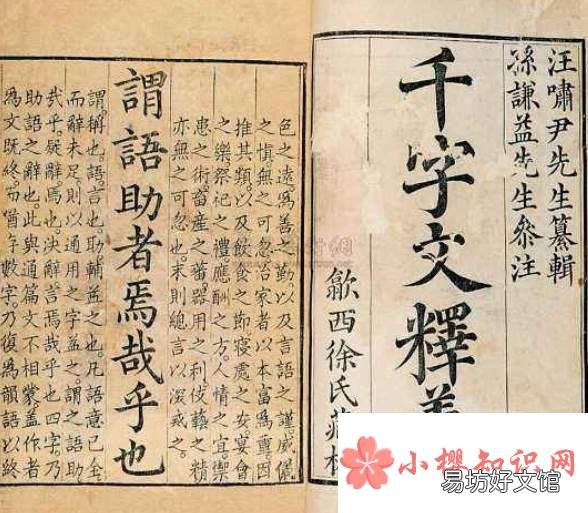 汪嘯尹先生纂輯
孫謙益先生參注
千字文釋
歙西徐氏藏
色之遠。為善之勤。以及言語之謹。威儀
之慎。無之可忽。治家者以本富為重。因
推其類。以及飲食之節。寢處之安。宴會
之樂。祭祀之禮。應酬之方。人情之宜。禦
患之術。畜產之蕃。器用之利。伎藝之精
亦無之可忽也。末則總言以深戒之。
謂語助者焉哉乎也
謂。稱也。語。言也。助。輔益之也。凡語意已全
而辭未足。則以通用之字益之。謂之語助
哉乎。疑辭。焉也。決辭。言焉哉乎也四字。乃
助語之辭也。此與通篇文不相蒙。蓋作者
為文既終。而數字。乃復為韻語以終
小樱知识网
易坊好文馆